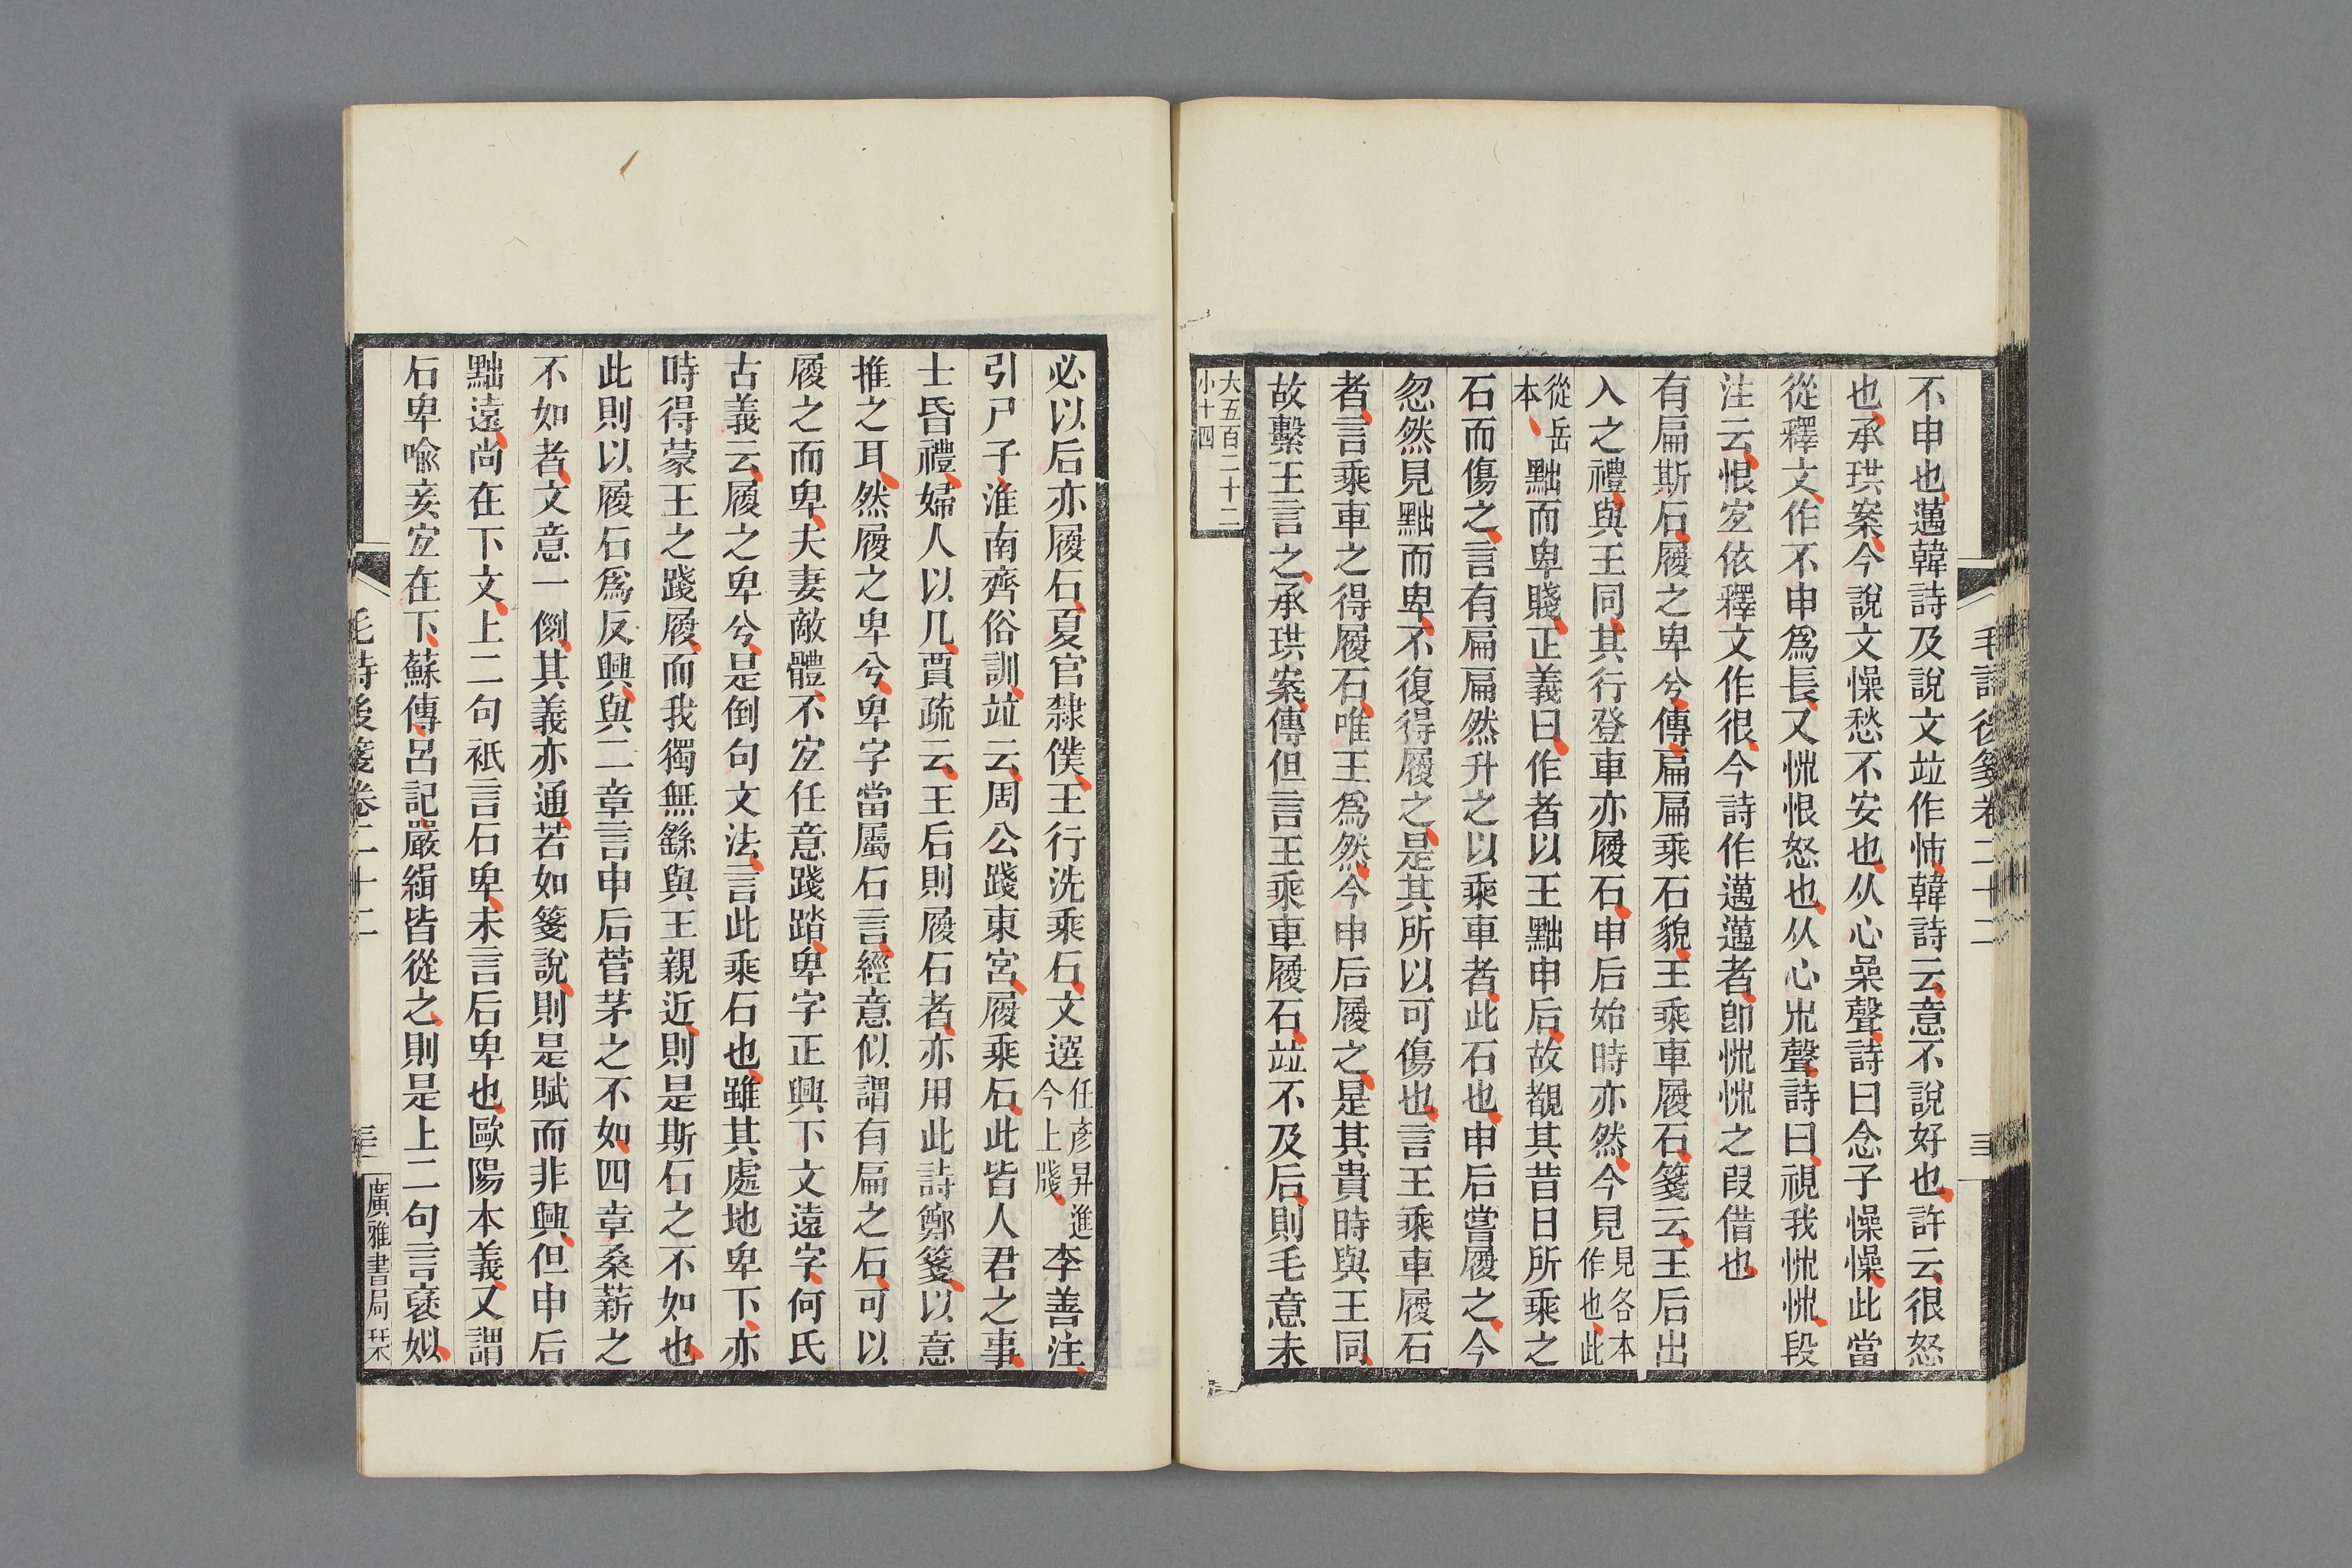 不申也邁韓詩及說文竝作怖韓詩云意不說好也許云很怒
也承珙案今說文懆愁不安也从心喿聲詩曰念子懆懆此當
從釋文作不申爲長又㤄恨怒也从心巿聲詩曰視我㤄㤄段
注云恨宐依釋文作很今詩作邁邁者卽㤄㤄之叚借也
有扁斯石履之卑兮傳扁扁乘石貌王乘車履石箋云王后出
入之禮與王同其行登車亦履石申后始時亦然今見見各本作也此
從岳本黜而卑賤正義曰作者以王黜申后故覩其昔日所乘之
石而傷之言有扁扁然升之以乘車者此石也申后嘗履之今
忽然見黜而卑不復得履之是其所以可傷也言王乘車履石
者言乘車之得履石唯王爲然今申后履之是其貴時與王同
故繫王言之承珙案傳但言王乘車履石竝不及后則毛意未
大五百二十二
小十四
毛詩後箋卷二十二
必以后亦履石夏官隸僕王行洗乘石文選任彦昇進今上牋李善注
引尸子淮南齊俗訓竝云周公踐東宮履乘石此皆人君之事
士昏禮婦人以几賈疏云王后則履石者亦用此詩鄭箋以意
推之耳然履之卑兮卑字當屬石言經意似謂有扁之石可以
履之而卑夫妻敵體不宐任意踐踏卑字正興下文遠字何氏
古義云履之卑兮是倒句文法言此乘石也雖其處地卑下亦
時得蒙王之踐履而我獨無繇與王親近則是斯石之不如也
此則以履石爲反興與二章言申后菅茅之不如四章桑薪之
不如者文意一例其義亦通若如箋說則是賦而非興但申后
黜遠尚在下文上二句衹言石卑未言后卑也歐陽本義又謂
石卑喻妾宐在下蘇傳呂記嚴緝皆從之則是上二句言襃姒
毛詩後箋卷二十二
廣雅書局栞